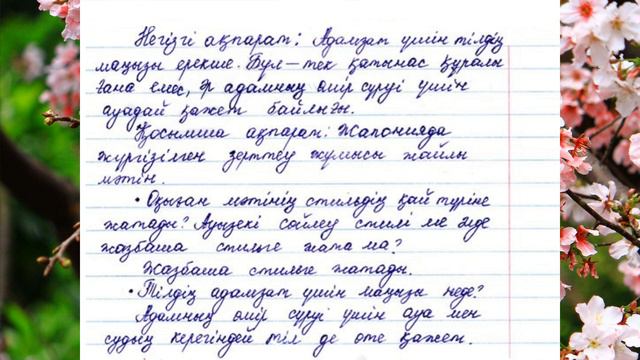 Негізгі ақпарат: Адамзат үшін тілдің
маңызы ерекше. Бұл – тек қатынас құралы
ғана емес, әр адамның өмір сүруі үшін
ауадай қажет байлығы.
Қосымша ақпарат: Жапонияда
жүргізілген зерттеу жұмысы жайлы
мәтін.
• Оқыған мәтінің стильдің қай түріне
жатады? Ауызекі сөйлеу стилі ме әлде
жазбаша стильге жата ма?
Жазбаша стильге жатады.
• Тілдің адамзат үшін маңызы неде?
Адамның өмір сүруі үшін ауа мен
судың керегіндей тіл де өте қажет.